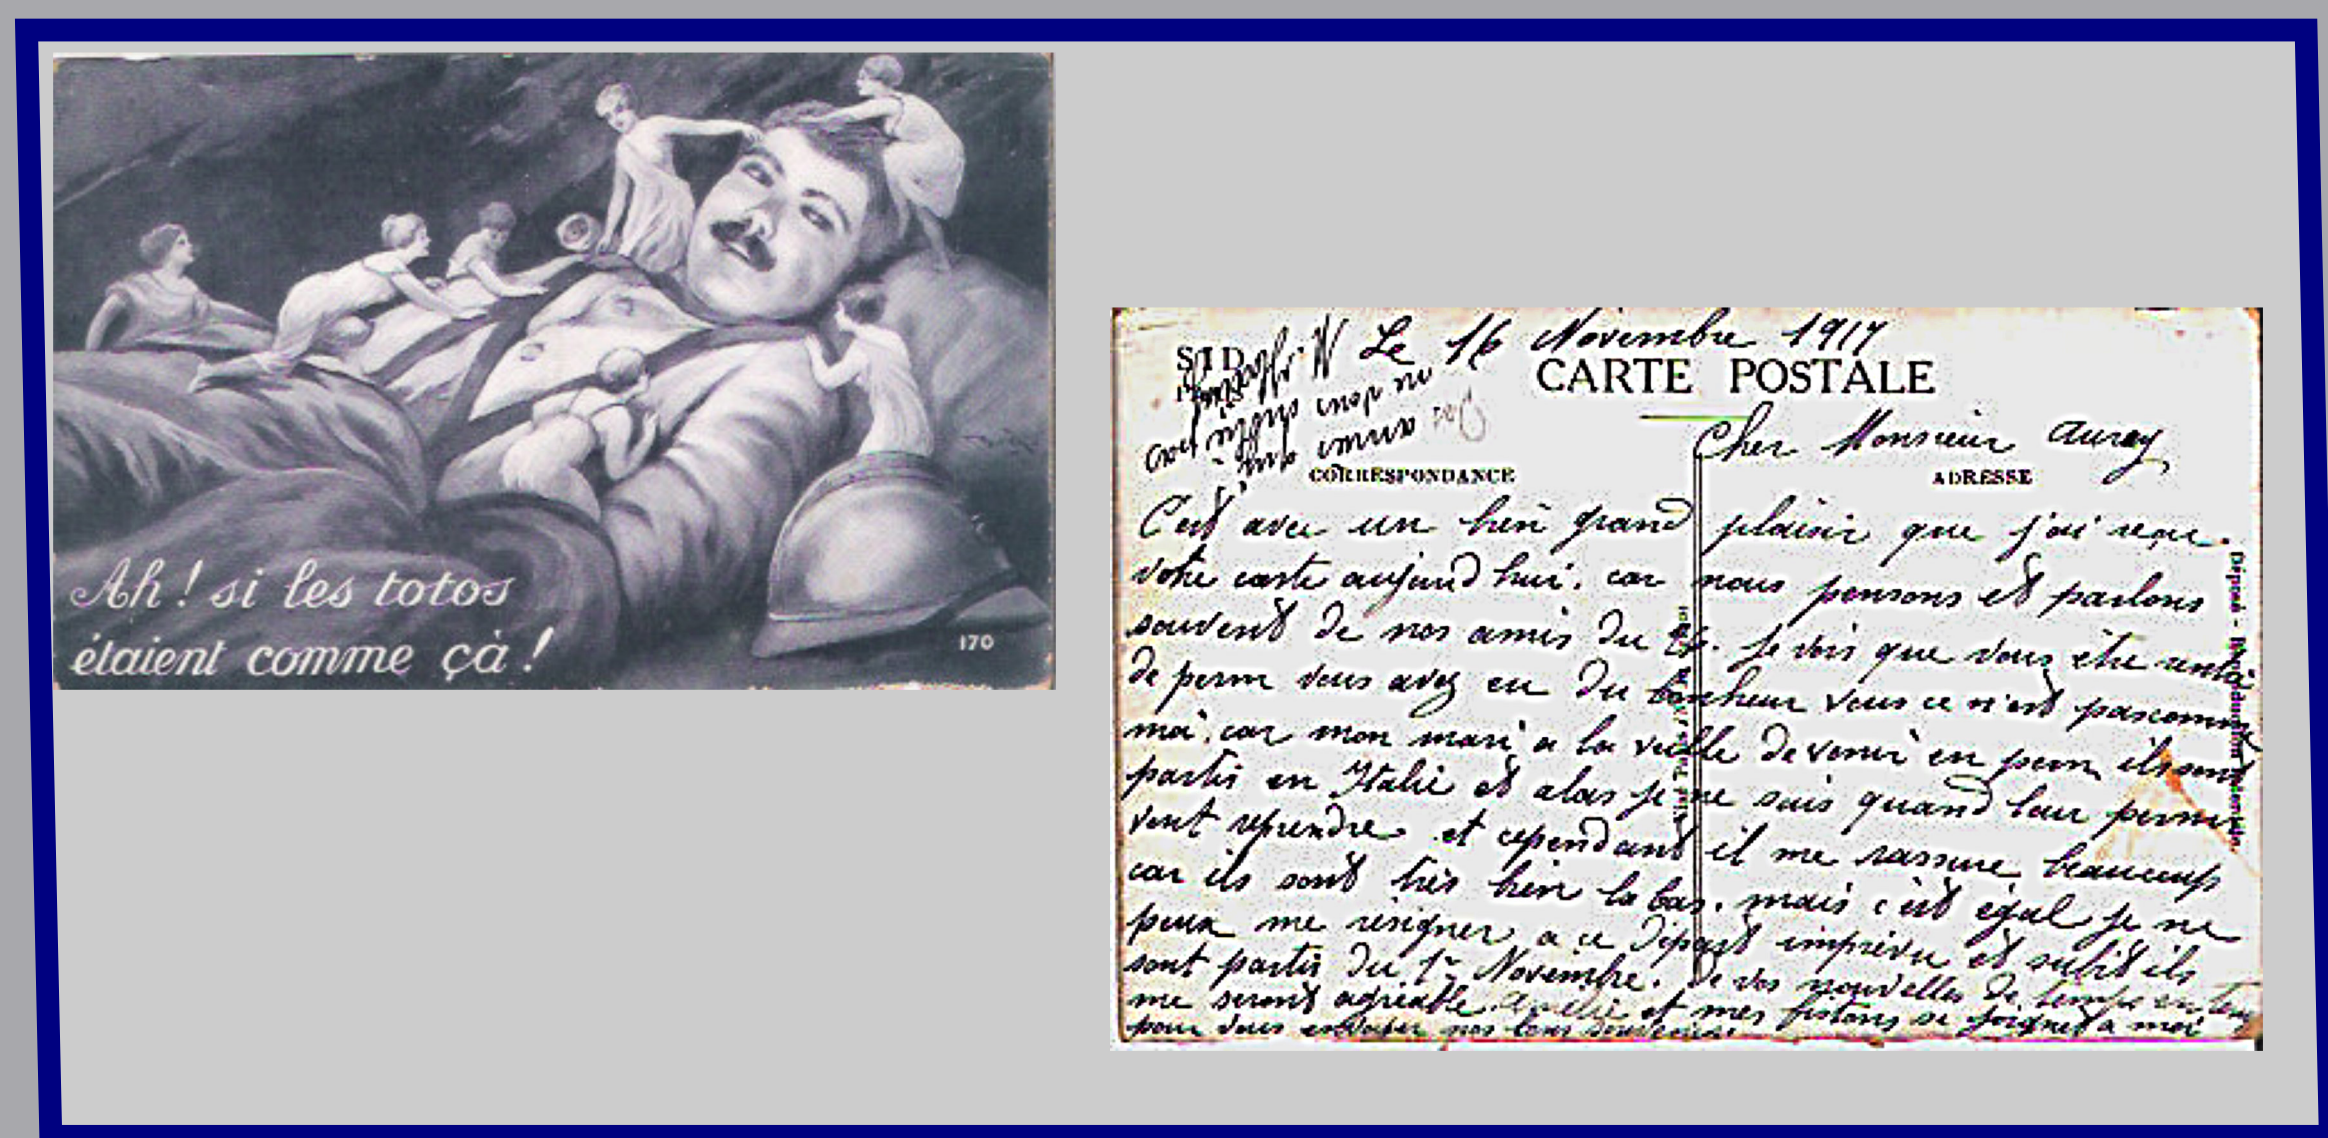 Ah ! si les totos
étaient comme çà !
170
Le 16 Novembre 1917
CARTE POSTALE
Cher Monsieur Auray
CORRESPONDANCE
ADRESSE
C'est avec un bien grand plaisir que j'ai reçu
votre carte aujourd'hui. car nous pensons et parlons
souvent de nos amis du je vois que vous ête
de perm vous avez eu du bonheur vous ce n'est pas comme
moi, car mon mari a la veille de venir en perm ils sont
partis en Italie et alors je ne sais quand leur perm
vont reprendre et cependant il me rassure beaucoup
car ils sont très bien la bas. mais c'est égal je ne
peux me résigner a ce départ imprévu et subit ils
sont partis du 1er Novembre. de vos nouvelles de temps en
me seront agréable et mes fistons se joignet a moi
pour vous envoyer nos bons souvenirs